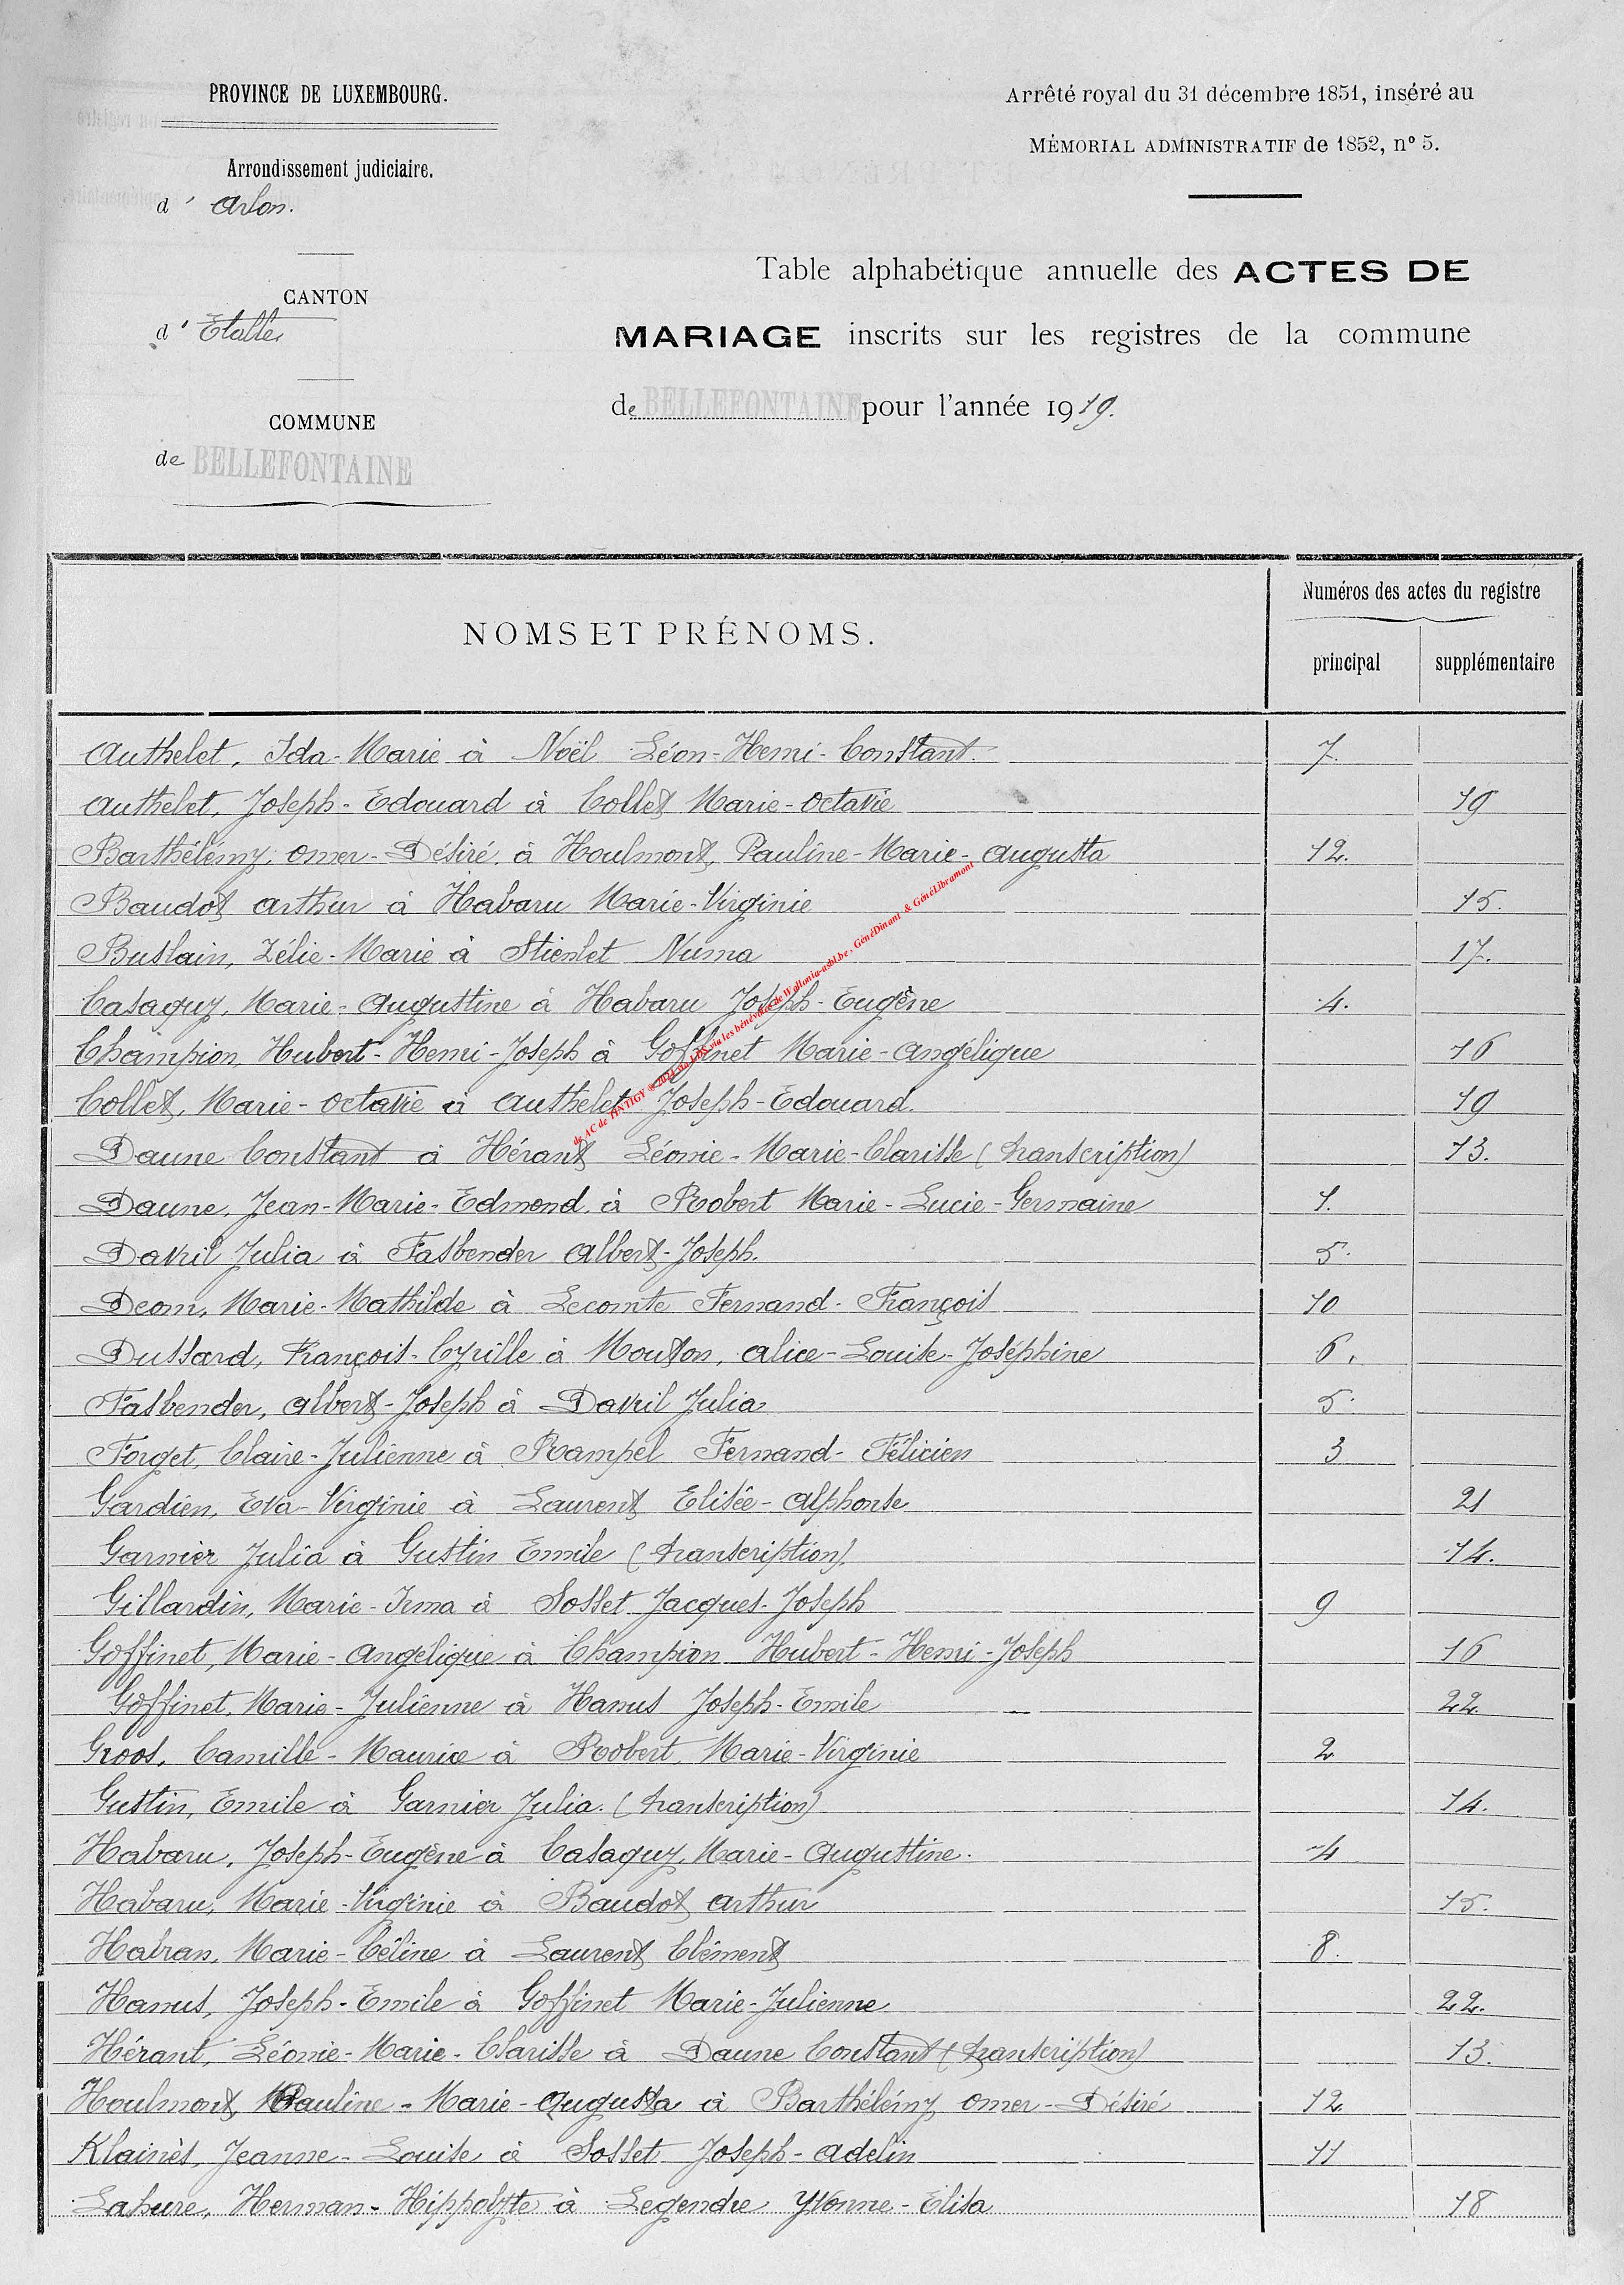 PROVINCE DE LUXEMBOURG.
Arrondissement judiciaire.
d' Arlon.
CANTON
d' Etalle
COMMUNE
de BELLEFONTAINE
Arrêté royal du 31 décembre 1851, inséré au
MÉMORIAL ADMINISTRATIF de 1852, nº 5.
Table alphabétique annuelle des ACTES DE
MARIAGE inscrits sur les registres de la commune
de BELLEFONTAINE pour l'année 1919.
NOMS ET PRÉNOMS.
Numéros des actes du registre
principal supplémentaire
Authelet, Ida-Marie à Noël Léon-Henri-Constant. 7.
Authelet, Joseph-Edouard à Collet Marie-Octavie 19
Barthélémy, Omer-Désiré, à Houlmont, Pauline-Marie-Augusta 12.
Baudot Arthur à Habaru Marie-Virginie 15.
Buslain, Zélie-Marie à Stienlet Numa 17.
Casaquy, Marie-Augustine à Habaru Joseph-Eugène 4.
Champion, Hubert-Henri-Joseph à Goffinet Marie-Angélique 16
Collet, Marie-Octavie à Authelet Joseph-Edouard. 19
Daune Constant à Hérant Léonie-Marie-Clarisse (transcription) 13.
Daune, Jean-Marie-Edmond, à Robert Marie-Lucie-Germaine 1.
Davril Julia à Fasbender Albert-Joseph. 5.
Deom, Marie-Mathilde à Lecomte Fernand-François 10
Dussard, François-Cyrille à Mouton, Alice-Louise-Joséphine 6.
Fasbender, Albert-Joseph à Davril Julia 5.
Forget, Claire-Julienne à Rampel Fernand-Félicien 3
Gardien, Eva-Virginie à Laurent Elisée-Alphonse 21
Garnier Julia à Gustin Emile (transcription). 14.
Gillardin, Marie-Irma à Sosset Jacques-Joseph 9
Goffinet, Marie-Angélique à Champion Hubert-Henri-Joseph 16
Goffinet, Marie-Julienne à Hanus Joseph-Emile 22.
Groos, Camille-Maurice à Robert, Marie-Virginie 2
Gustin, Emile à Garnier Julia. (transcription) 14.
Habaru, Joseph-Eugène à Casaquy, Marie-Augustine. 4
Habaru, Marie-Virginie à Baudot Arthur 15.
Habran, Marie-Céline à Laurent Clément 8.
Hanus, Joseph-Emile à Goffinet Marie-Julienne 22.
Hérant, Léonie-Marie-Clarisse à Daune Constant (transcription) 13.
Houlmont, Pauline-Marie-Augusta à Barthélémy Omer-Désiré 12
Klainès, Jeanne-Louise à Sosset Joseph-Adelin 11
Lahure, Herman-Hippolyte à Legendre Yvonne-Elisa 18